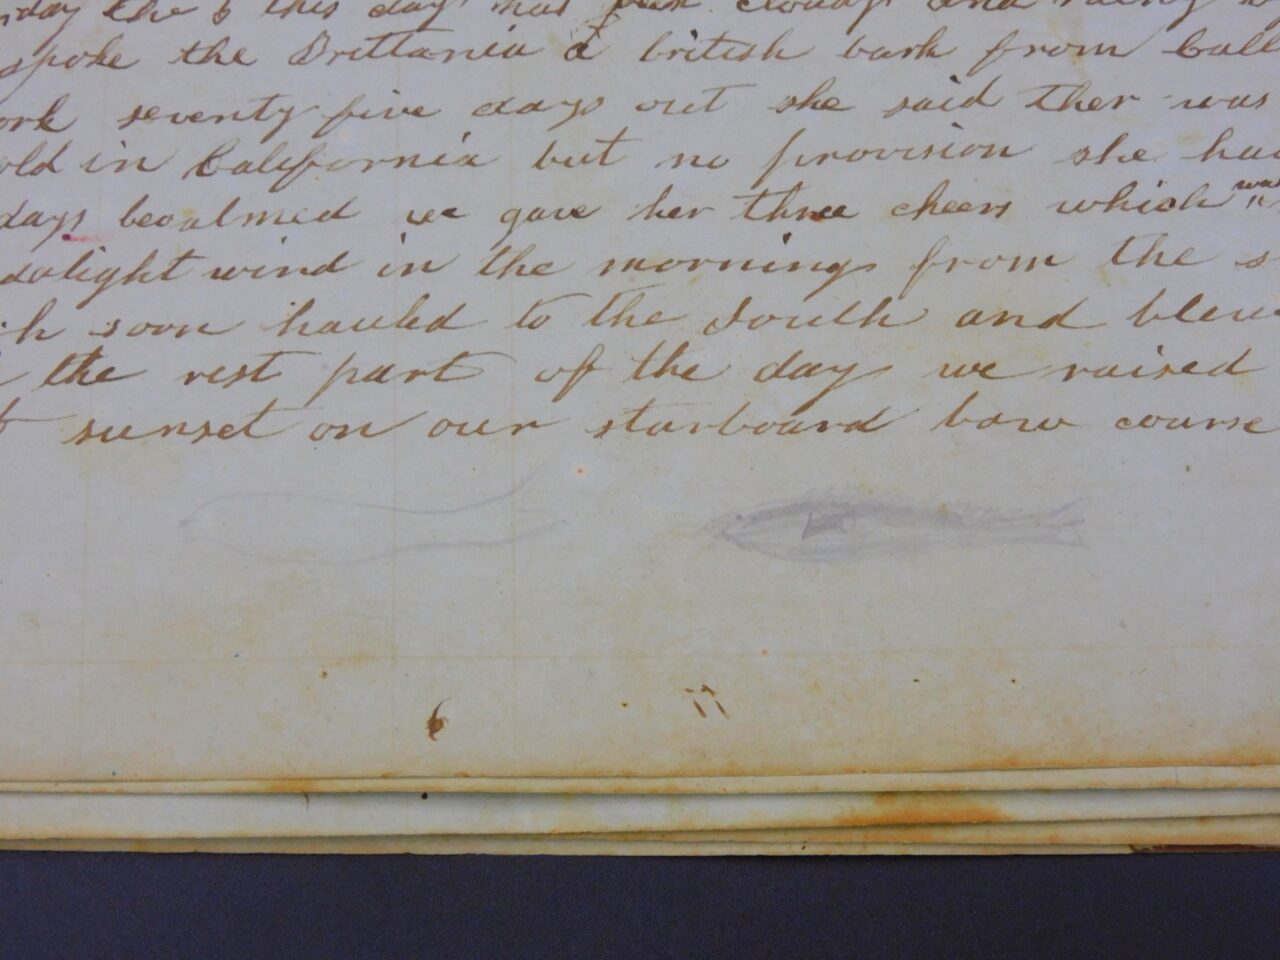 the 6 this day has been cloudy and
spoke the Brittania a british bark from Call
ork seventy five days out she said ther was
old in California but no provision she had
days becalmed we gave her three cheers which
dalight wind in the mornings from the s
ch soon hauled to the South and blew
the rest part of the day we raised
sunset on our starboard bow course